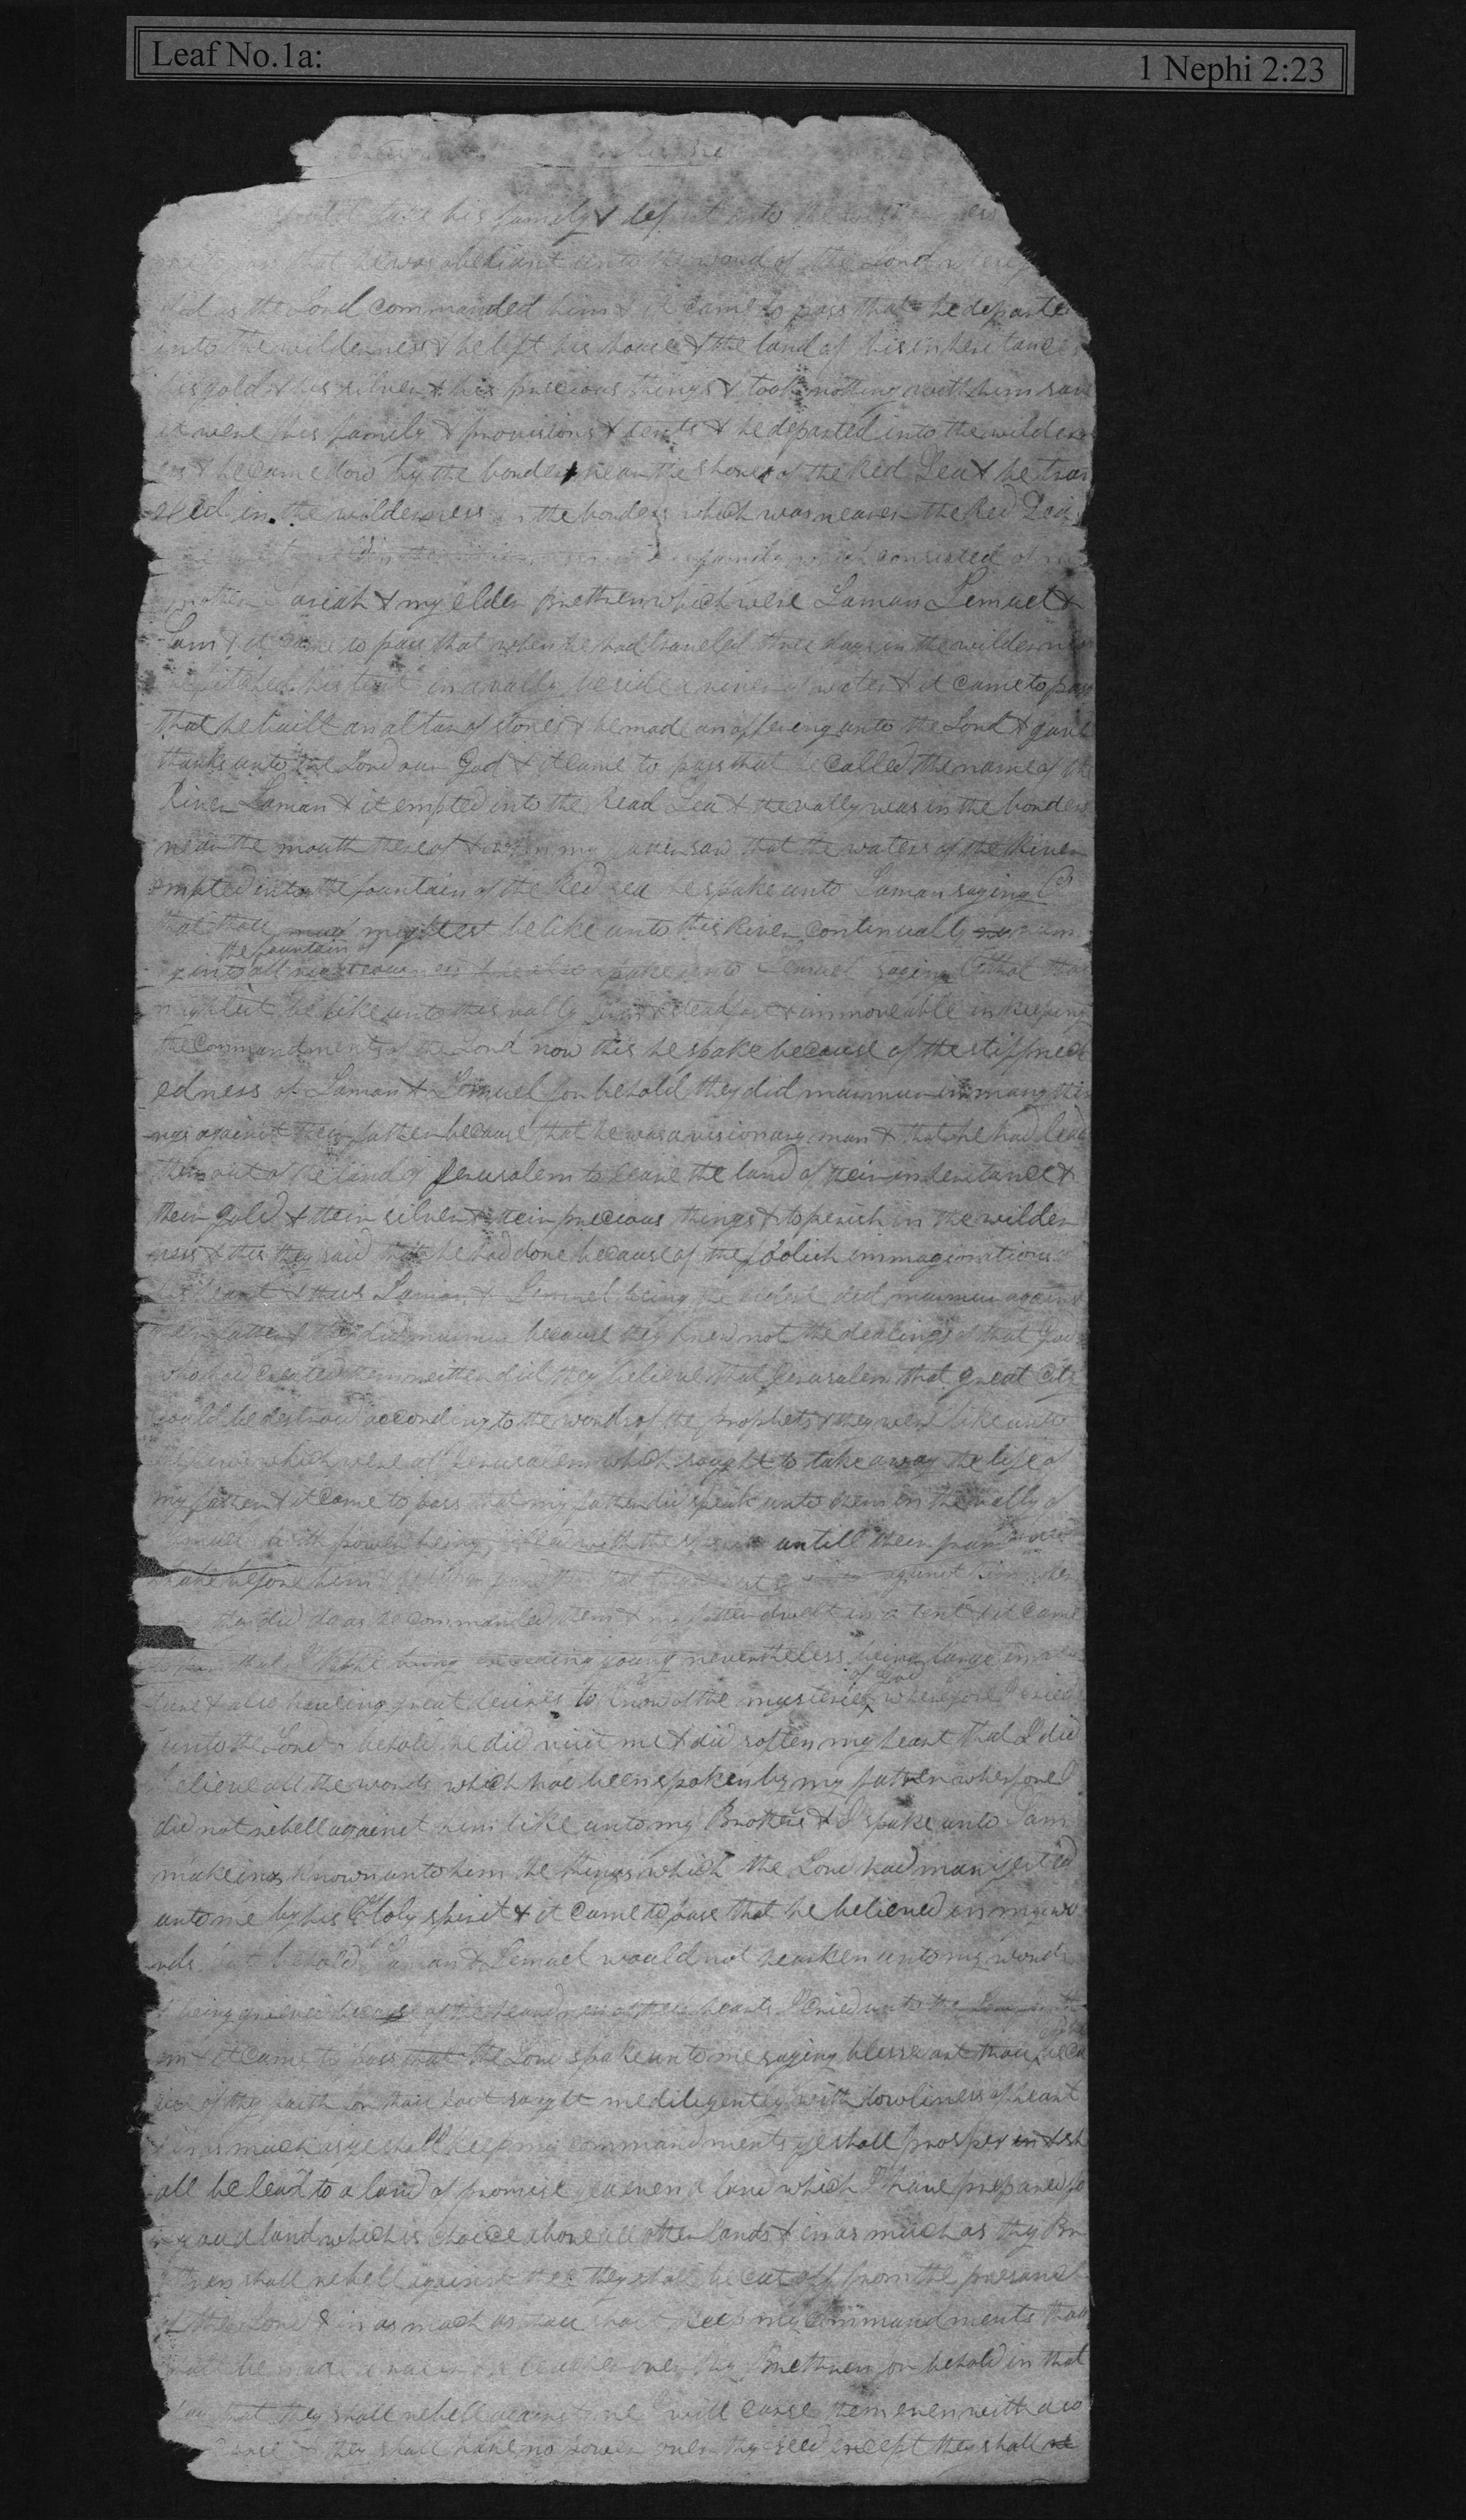 Leaf No.1a: 1 Nephi 2:23
take his family & depart into the
that he was obediant unto the word of the Lord
did as the Lord commanded him & it came to pass that he departe
into the wilderness & he left his house & the land of his inheritance
his gold & his silver & his precious things & took nothing with him save
it were his family & provisions & tents & he departed into the wildern
ess & he came dow by the borders near the shore of the Red Sea & he trav
eled in the wilderness in the borders which was nearer the Red Sea
family which consisted of
mother ariah & my elder Brethren which were Laman Lemuel &
Sam & it came to pass that when he had traveled three days in the wilderness
pitched his tent in a vally beside a river of water & it came to pass
that he built an altar of stones & he made an offering unto the Lord & gave
thanks unto the Lord our God & it came to pass that he called the name of the
River Laman & it emptied into the Read Sea & the vally was in the borders
near the mouth thereof & when my father saw that the waters of the River
emptied into the fountain of the Red sea he spake unto Laman saying O
that thou mightest be like unto this River continually
the fountain of
all righteousness he also spake unto Lemuel saying O that thou
mightest be like unto this vally firm & steadfast & immoveable in keeping
the commandments of the Lord now this he spake because of the stiffneck
edness of Laman & Lemuel for behold they did murmur in many thi
ngs against their father because that he was a visionary man & that he had lead
them out of the land of Jerusalem to leave the land of their inheritance &
their gold & their silver & their precious things & to perish in the wilder
ness & this they said that he had done because of the foolish immaginations of
his heart & thus Laman & Lemuel being the eldest did murmur against
their father & they did murmur because they knew not the dealings of that God
who had created them neither did they believe that Jerusalem that great City
could be destroyed according to the words of the prophets & they were like unto
the jews which were at Jerusalem which sought to take away the life of
my father & it came to pass that my father did speak unto them in the vally of
muel with power being filled with the spirit untill their frames did
shake before him against him wher
they did do as he commanded them & my father dwelt in a tent & it came
to pass that I Nephi being exceeding young nevertheless being large in sta
of God
ture & also haveing great desires to know of the mysteries wherefore I cried
unto the Lord & behold he did visit me & did soften my heart that I did
believe all the words which had been spoken by my father wherefore I
did not rebell against him like unto my Brothers & I spake unto Sam
makeing known unto him the things which the Lord had manifested
unto me by his Holy spirit & it came to pass that he believed in my wo
rds but behold Laman & Lemuel would not hearken unto my words
& being grieved because of the hardness of their hearts I cried unto the Lord for the
em & it came to pass that the Lord spake unto me saying blessed art thou beca
use of thy faith for thou hast sought me diligently with lowliness of heart
& in as much as ye shall keep my commandments ye shall prosper & sh
all be lead to a land of promise yea even a land which I have prepared fo
r you a land which is choice above all other lands & in as much as thy Br
ethren shall rebell against thee they shall be cut off from the presence
of the Lord & in as much as thou shalt keep my commandments thou
shalt be made a ruler & a teacher over thy Brethren for behold in that
day that they shall rebell against me I will curse them even with a so
curse & they shall have no power over thy seed except they shall